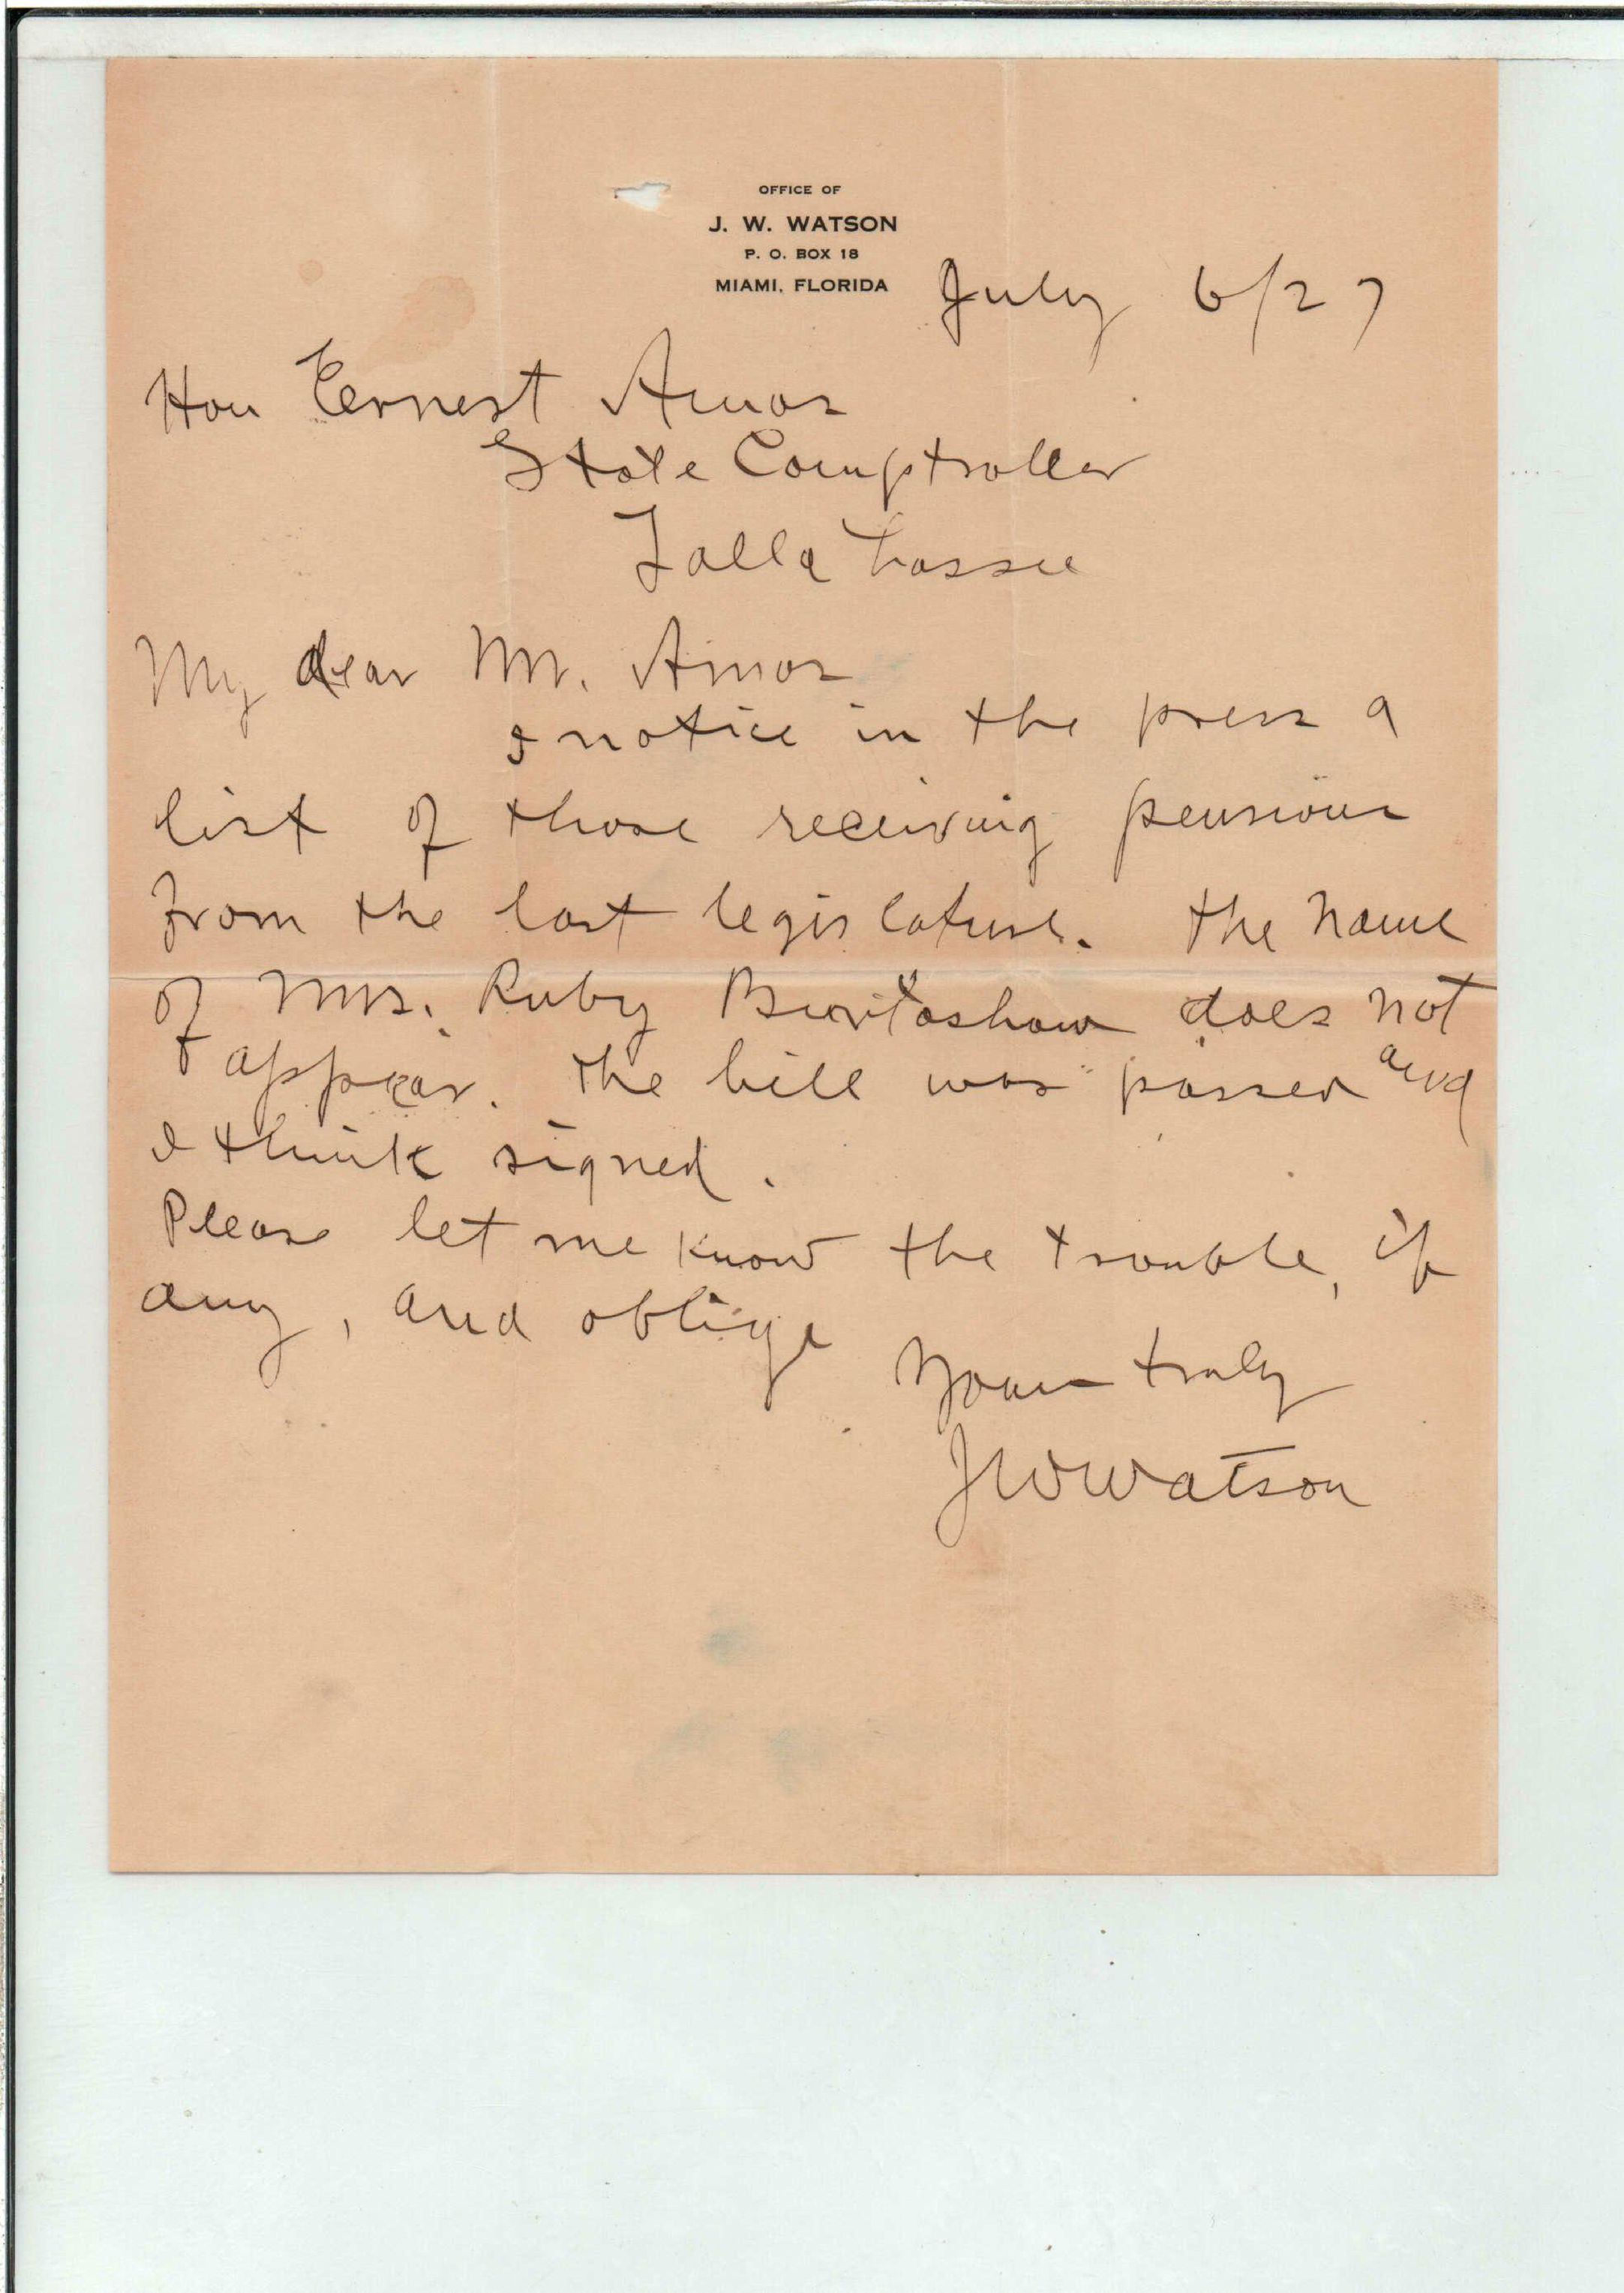 OFFICE OF
J. W. WATSON
P. O. BOX 18
MIAMI, FLORIDA
July 6/27
Hon Ernest Amos
State Comptroller
Tallahassee
My dear Mr. Amos
I notice in the press a
list of those receiving pensions
from the last legislature. The name
of Mrs. Ruby does not
appear. The bill was passed and
I think signed.
Please let me know the trouble, if
any, and oblige
Yours truly
JW Watson